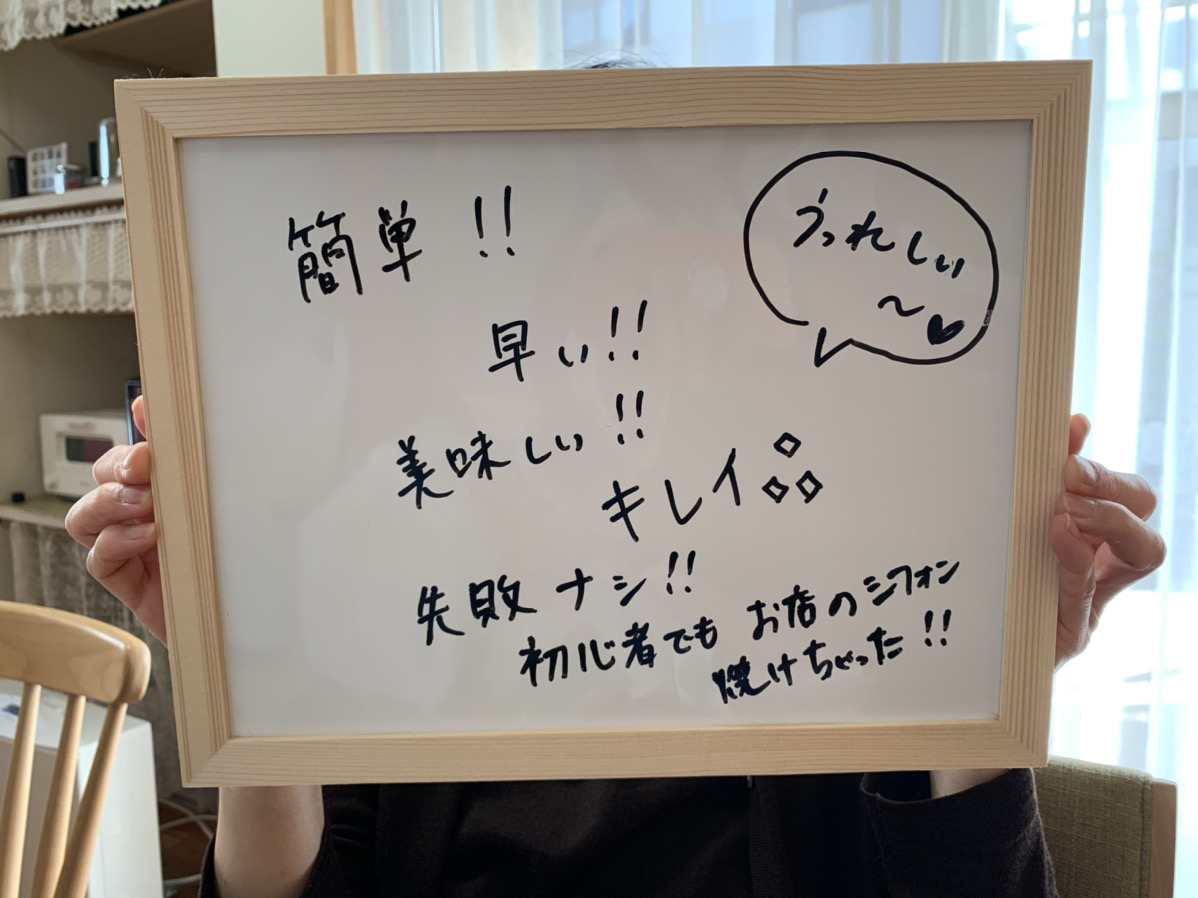 簡単!!
うっれしぃ
〜♥
早い!!
美味しい!!
キレイ
失敗ナシ!!
初心者でも お店のシフォン
焼けちゃった!!